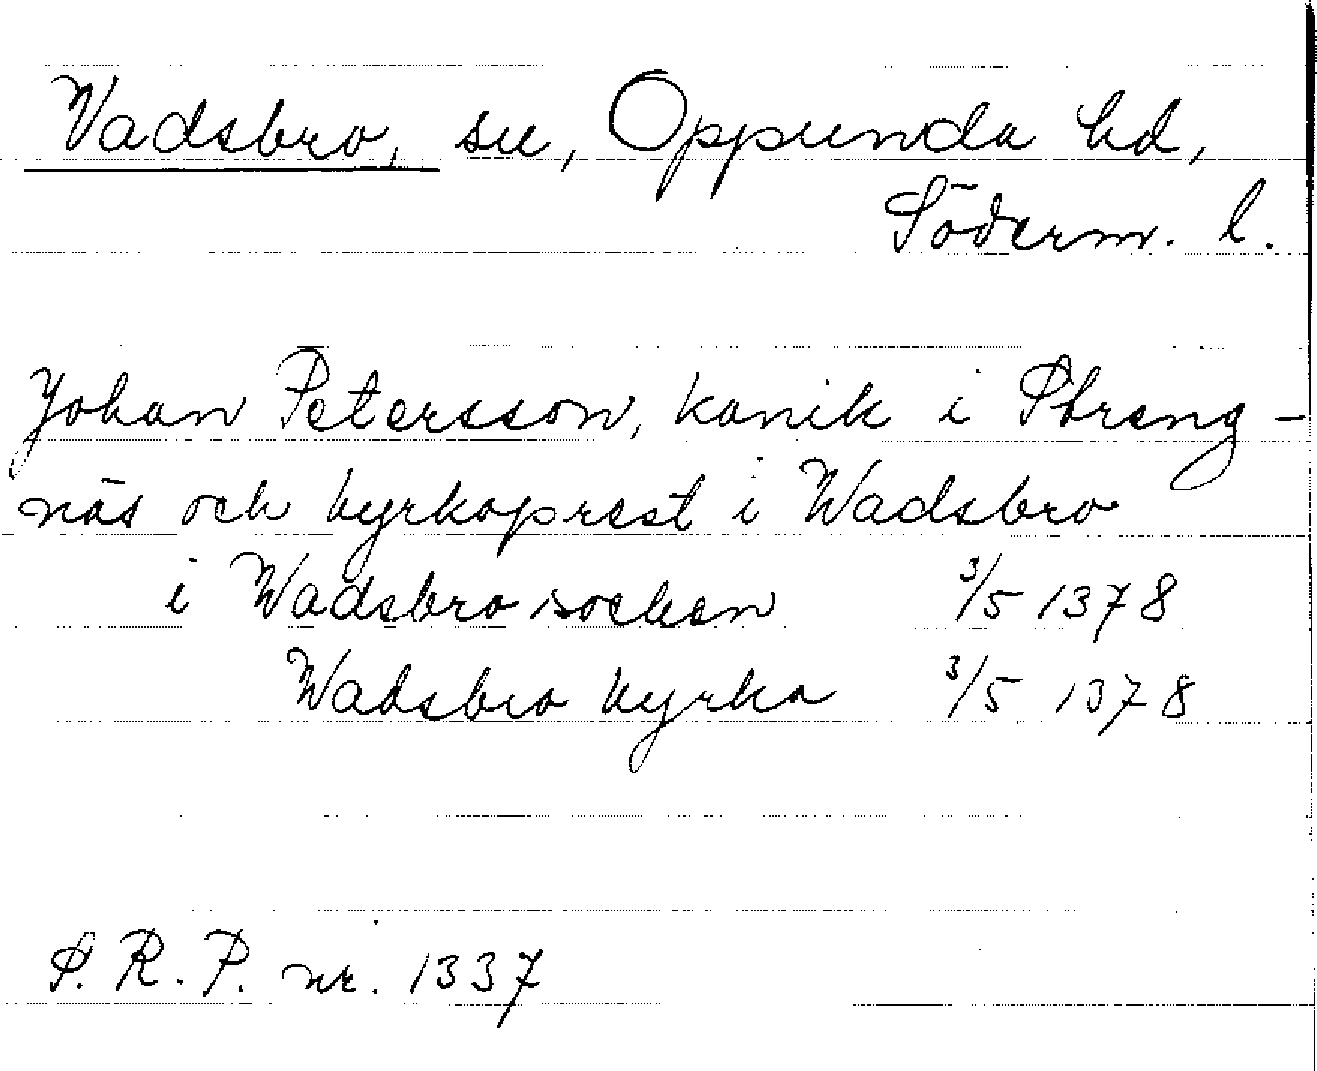 Vadsbro, sn, Oppunda hd,
Söderm. l.
Johan Petersson, kanik i Streng-
näs och kyrkoprest i Wadsbro
i Wadsbro socken 3/5 1378
Wadsbro kyrka 3/5 1378
S. R. P. nr. 1337